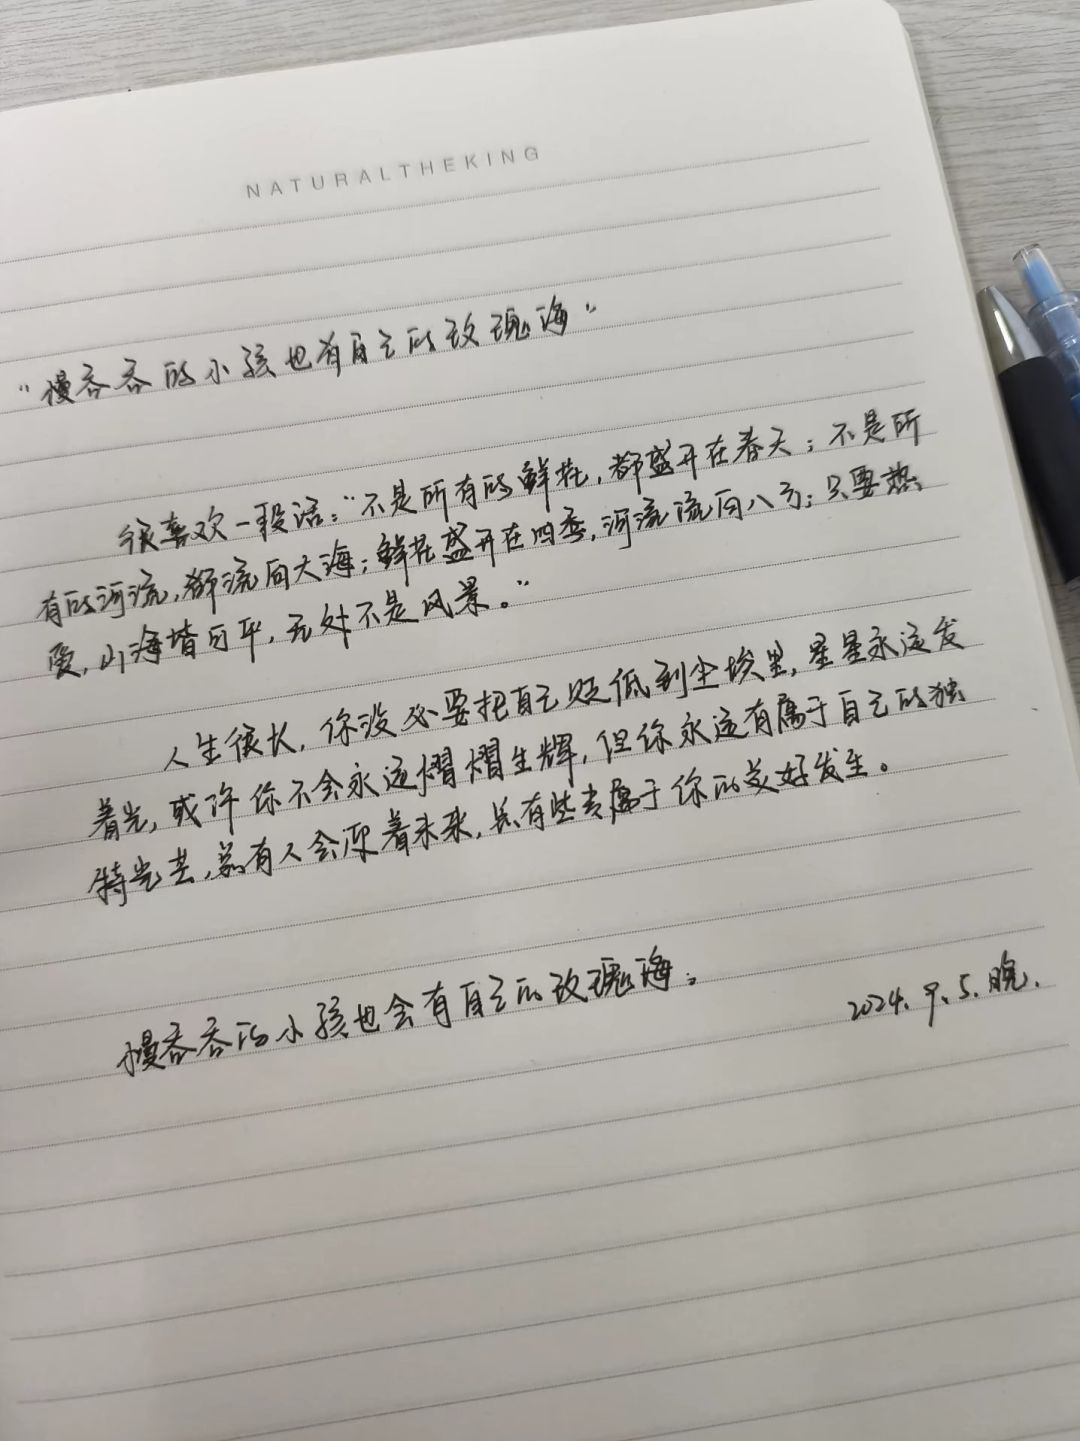 NATURALTHEKING
“慢吞吞的小孩也有自己的玫瑰海”
很喜欢一段话：“不是所有的鲜花，都盛开在春天；不是所
有的河流，都流向大海；鲜花盛开在四季，河流流向八方；只要热
爱，山海皆可平，无处不是风景。”
人生很长，你没必要把自己贬低到尘埃里，星星永远发
着光，或许你不会永远熠熠生辉，但你永远有属于自己的独
特光芒，总有人会陪着未来，总有些会属于你的美好发生。
慢吞吞的小孩也会有自己的玫瑰海。
2024.9.5.晚.